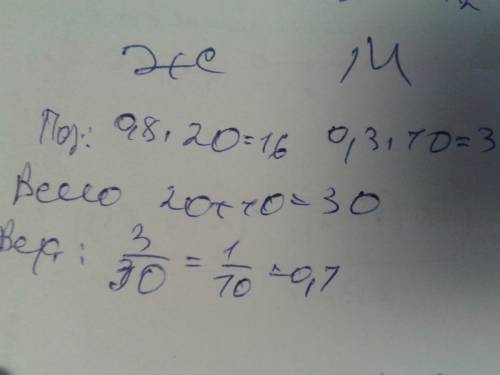 Ж М
Поз: 0,8 · 20 = 16 0,3 · 10 = 3
Всего 20 + 10 = 30
Вер: 3/30 = 1/10 = 0,1